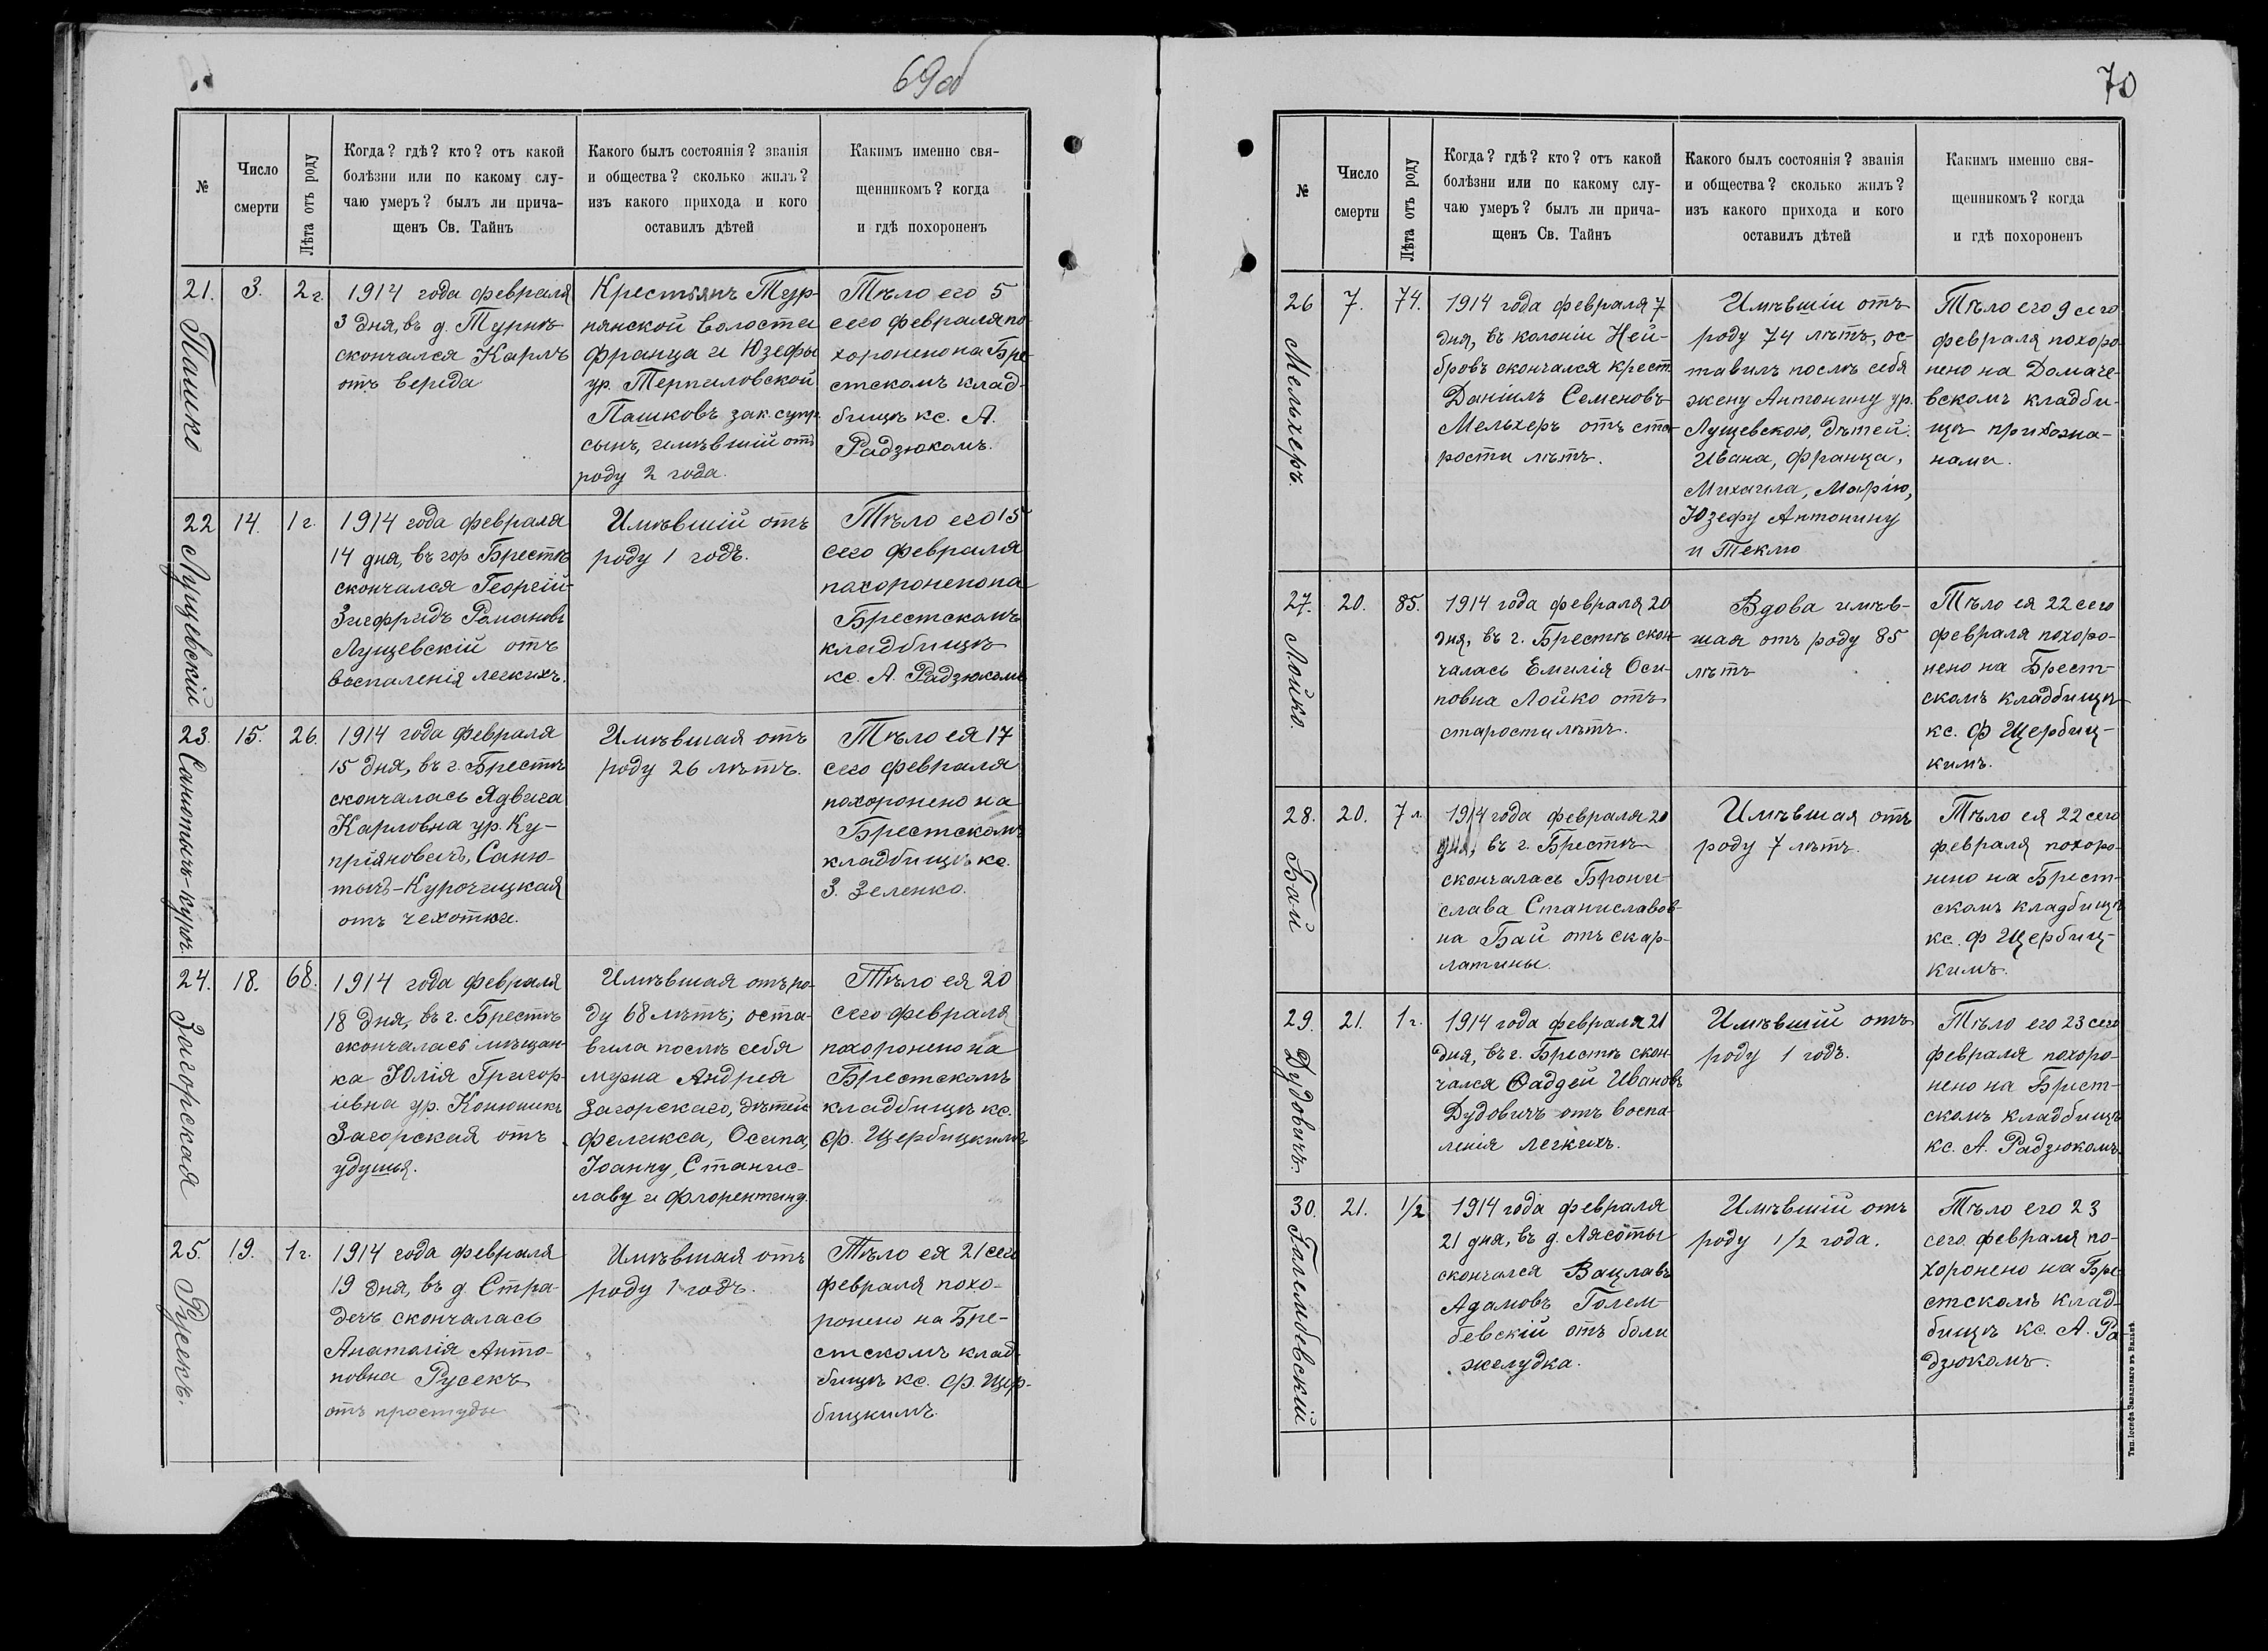 69об
№
Число
смерти
Лѣта отъ роду
Когда? гдѣ? кто? отъ какой
болѣзни или по какому слу-
чаю умеръ? былъ ли прича-
щенъ Св. Тайнъ
Какого былъ состоянія? званія
и общества? сколько жилъ?
изъ какого прихода и кого
оставилъ дѣтей
Какимъ именно свя-
щенникомъ? когда
и гдѣ похороненъ
21.
Пашко
3.
2 г.
1914 года февраля
3 дня, въ д. Турнѣ
скончался Карлъ
отъ вереда
Крестьянъ Тур-
нянской волости
Франца и Юзефы
ур. Терпиловской
Пашковъ зак. супр.
сынъ, имѣвшій отъ
роду 2 года.
Тѣло его 5
сего февраля по-
хоронено на Бре-
стскомъ клад-
бищѣ кс. А.
Радзюкомъ.
22
Лущевскій
14.
1 г.
1914 года февраля
14 дня, въ гор. Брестѣ
скончался Георгій-
Зигфридъ Романовъ
Лущевскій отъ
воспаленія легкихъ.
Имѣвшій отъ
роду 1 годъ.
Тѣло его 15
сего февраля
похоронено на
Брестскомъ
кладбищѣ
кс. А. Радзюкомъ
23.
Санютычъ-Куроч.
15.
26.
1914 года февраля
15 дня, въ г. Брестѣ
скончалась Ядвига
Карловна ур. Ку-
пріяновичъ, Саню-
тычъ-Курочицкая
отъ чехотки.
Имѣвшая отъ
роду 26 лѣтъ.
Тѣло ея 17
сего февраля
похоронено на
Брестскомъ
кладбищѣ кс.
З. Зеленко.
24.
Загорская
18.
68.
1914 года февраля
18 дня, въ г. Брестѣ
скончалась мѣщан-
ка Юлія Григор-
іевна ур. Конюшикъ
Загорская отъ
удушья.
Имѣвшая отъ ро-
ду 68 лѣтъ; оста-
вила послѣ себя
мужа Андрея
Загорскаго, дѣтей
Феликса, Осипа,
Іоанну, Станис-
лаву и Флорентину.
Тѣло ея 20
сего февраля
похоронено на
Брестскомъ
кладбищѣ кс.
Ф. Щербицкимъ
25.
Русекъ.
19.
1 г.
1914 года февраля
19 дня, въ д. Стра-
дечь скончалась
Анатолія Анто-
новна Русекъ
отъ простуды
Имѣвшая отъ
роду 1 годъ.
Тѣло ея 21 сего
февраля похо-
ронено на Бре-
стскомъ клад-
бищѣ кс. Ф. Щер-
бицкимъ.
70
№
Число
смерти
Лѣта отъ роду
Когда? гдѣ? кто? отъ какой
болѣзни или по какому слу-
чаю умеръ? былъ ли прича-
щенъ Св. Тайнъ
Какого былъ состоянія? званія
и общества? сколько жилъ?
изъ какого прихода и кого
оставилъ дѣтей
Какимъ именно свя-
щенникомъ? когда
и гдѣ похороненъ
26
Мельхеръ.
7.
74.
1914 года февраля 7
дня, въ колоніи Ней-
бровъ скончался крест.
Даніилъ Семеновъ
Мельхеръ отъ ста-
рости лѣтъ.
Имѣвшій отъ
роду 74 лѣтъ, ос-
тавилъ послѣ себя
жену Антонину ур.
Лущевскою, дѣтей:
Ивана, Франца,
Михаила, Марію,
Юзефу Антонину
и Теклю
Тѣло его 9 сего
февраля похоро-
нено на Домаче-
вскомъ кладби-
щѣ прихожа-
нами.
27.
Лойко.
20.
85.
1914 года февраля 20
дня, въ г. Брестѣ скон-
чалась Емилія Оси-
повна Лойко отъ
старости лѣтъ.
Вдова имѣв-
шая отъ роду 85
лѣтъ
Тѣло ея 22 сего
февраля похоро-
нено на Брест-
скомъ кладбищѣ
кс. Ф Щербиц-
кимъ.
28.
Бай
20.
7 л.
1914 года февраля 20
дня, въ г. Брестѣ
скончалась Брони-
слава Станиславов-
на Бай отъ скар-
латины.
Имѣвшая отъ
роду 7 лѣтъ.
Тѣло ея 22 сего
февраля похоро-
нено на Брест-
скомъ кладбищѣ
кс. Ф Щербиц-
кимъ.
29.
Дудовичъ
21.
1 г.
1914 года февраля 21
дня, въ г. Брестѣ скон-
чался Фаддей Ивановъ
Дудовичъ отъ воспа-
ленія легкихъ.
Имѣвшій отъ
роду 1 годъ.
Тѣло его 23 сего
февраля похоро-
нено на Брест-
скомъ кладбищѣ
кс. А. Радзюкомъ.
30.
Голембевскій
21.
1/2
1914 года февраля
21 дня, въ д. Лясоты
скончался Вацлавъ
Адамовъ Голем-
бевскій отъ боли
желудка.
Имѣвшій отъ
роду 1/2 года.
Тѣло его 23
сего февраля по-
хоронено на Бре-
стскомъ клад-
бищѣ кс. А. Ра-
дзюкомъ.
Тип. Іосифа Завадзкаго въ Вильнѣ.